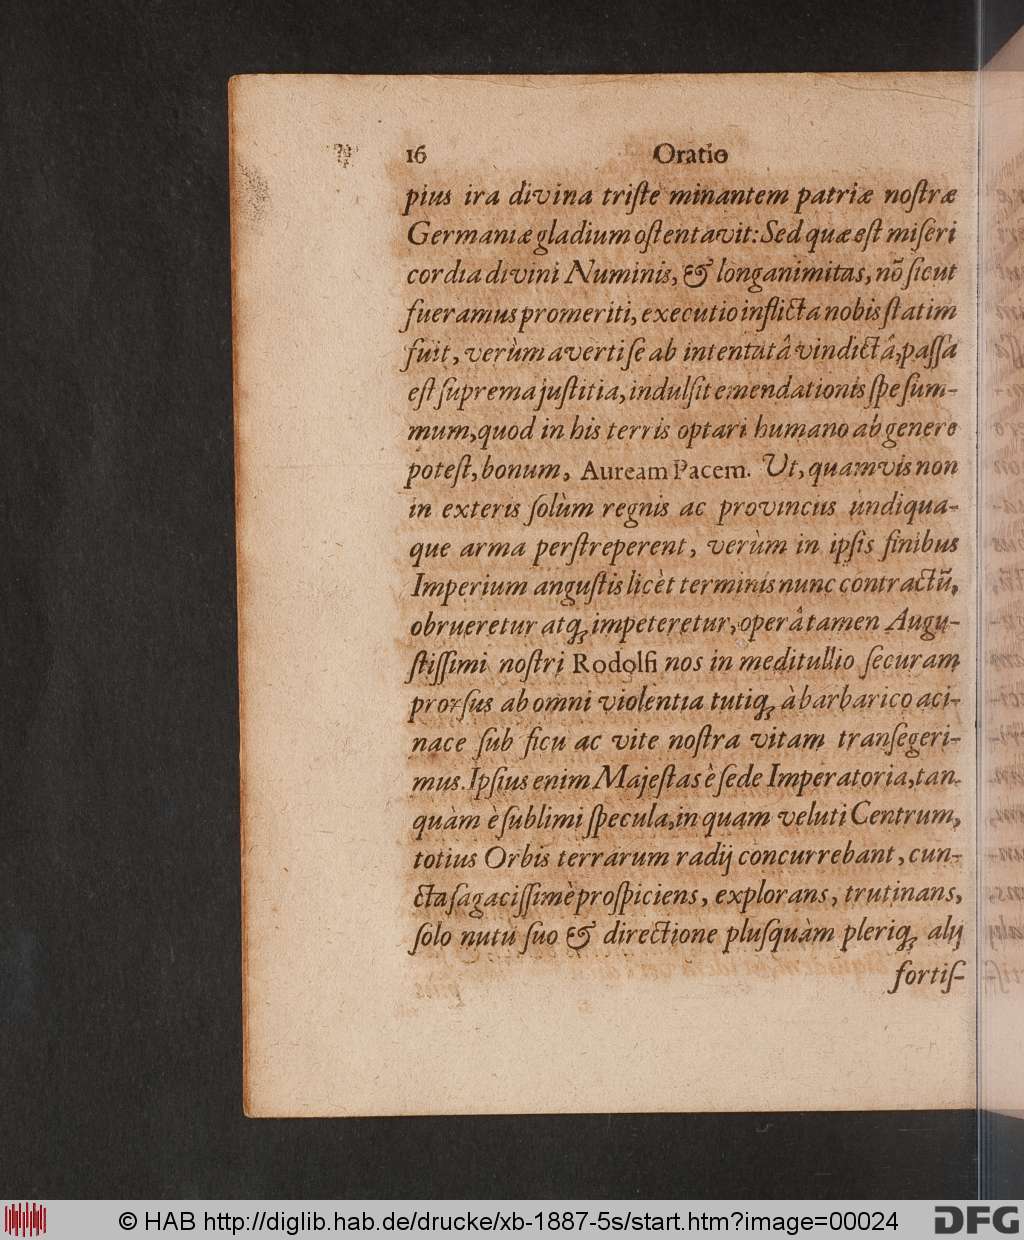 16 Oratio
pius ira divina triſte minantem patriæ noſtræ
Germaniæ gladium oſtentavit: Sed quæ eſt miſeri
cordia divini Numinis, & longanimitas, nõ ſicut
fueramus promeriti, executio inflicta nobis ſtatim
fuit, verùm averti ſe ab intentatâ vindictâ, paſſa
eſt ſuprema juſtitia, indulſit emendationis ſpe ſum-
mum, quod in his terris optari humano ab genere
poteſt, bonum, Auream Pacem. Ut, quamvis non
in exteris ſolùm regnis ac provinciis undiqua-
que arma perſtreperent, verùm in ipſis finibus
Imperium anguſtis licèt terminis nunc contractũ,
obrueretur atq; impeteretur, operâ tamen Augu-
ſtiſſimi noſtri Rodolfi nos in meditullio ſecuram
prorſus ab omni violentia tutiq; à barbarico aci-
nace ſub ficu ac vite noſtra vitam tranſegeri-
mus. Ipſius enim Majeſtas è ſede Imperatoria, tan-
quàm è ſublimi ſpecula, in quam veluti Centrum,
totius Orbis terrarum radij concurrebant, cun-
cta ſagaciſſimè proſpiciens, explorans, trutinans,
ſolo nutu ſuo & directione pluſquàm pleriq; alij
fortiſ-
© HAB http://diglib.hab.de/drucke/xb-1887-5s/start.htm?image=00024
DFG